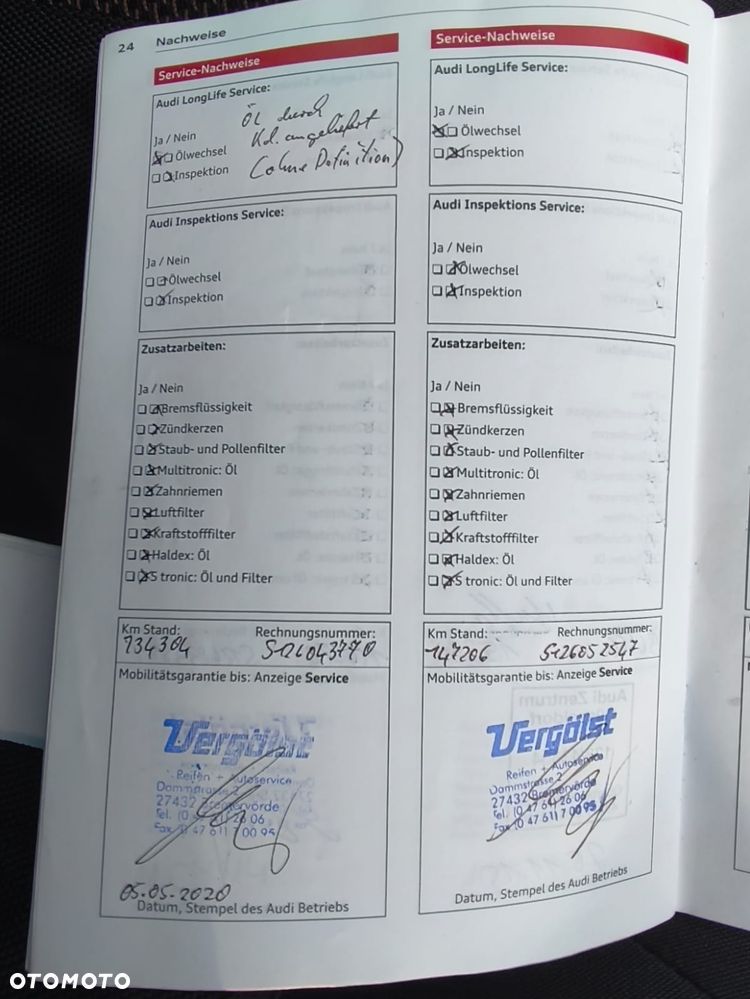 24 Nachweise
Service-Nachweise
Audi LongLife Service:
Öl durch
Kd. angeliefert
(ohne Definition)
Ja / Nein
Ölwechsel
Inspektion
Audi Inspektions Service:
Ja / Nein
Ölwechsel
Inspektion
Zusatzarbeiten:
Ja / Nein
Bremsflüssigkeit
Zündkerzen
Staub- und Pollenfilter
Multitronic: Öl
Zahnriemen
Luftfilter
Kraftstofffilter
Haldex: Öl
S tronic: Öl und Filter
Km Stand: Rechnungsnummer:
134304 S126043770
Mobilitätsgarantie bis: Anzeige Service
Vergölst
Reifen + Autoservice
Dammstrasse 2
27432 Bremervörde
Tel. (0 47 61) 26 06
Fax (0 47 61) 7 00 95
05.05.2020
Datum, Stempel des Audi Betriebs
Service-Nachweise
Audi LongLife Service:
Ja / Nein
Ölwechsel
Inspektion
Audi Inspektions Service:
Ja / Nein
Ölwechsel
Inspektion
Zusatzarbeiten:
Ja / Nein
Bremsflüssigkeit
Zündkerzen
Staub- und Pollenfilter
Multitronic: Öl
Zahnriemen
Luftfilter
Kraftstofffilter
Haldex: Öl
S tronic: Öl und Filter
Km Stand: Rechnungsnummer:
147206 S126052547
Mobilitätsgarantie bis: Anzeige Service
Vergölst
Reifen + Autoservice
Dammstrasse 2
27432 Bremervörde
Tel. (0 47 61) 26 06
Fax (0 47 61) 7 00 95
Datum, Stempel des Audi Betriebs
OTOMOTO